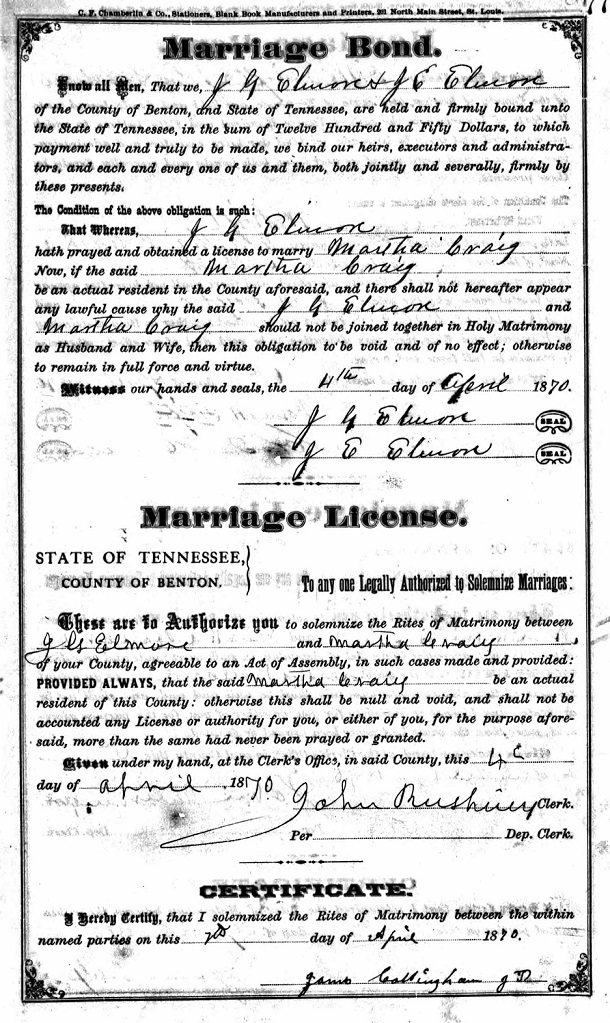 C. F. Chamberlin & Co., Stationers, Blank Book Manufacturers and Printers, 201 North Main Street, St. Louis.
Marriage Bond.
Know all Men, That we, J G Elmore & J E Elmore
of the County of Benton, and State of Tennessee, are held and firmly bound unto
the State of Tennessee, in the sum of Twelve Hundred and Fifty Dollars, to which
payment well and truly to be made, we bind our heirs, executors and administra-
tors, and each and every one of us and them, both jointly and severally, firmly by
these presents.
The Condition of the above obligation is such:
That Whereas, J G Elmore
hath prayed and obtained a license to marry Martha Craig
Now, if the said Martha Craig
be an actual resident in the County aforesaid, and there shall not hereafter appear
any lawful cause why the said J G Elmore and
Martha Craig should not be joined together in Holy Matrimony
as Husband and Wife, then this obligation to be void and of no effect; otherwise
to remain in full force and virtue.
Witness our hands and seals, the 4th day of April 1870.
J G Elmore SEAL
J E Elmore SEAL
Marriage License.
STATE OF TENNESSEE,
COUNTY OF BENTON. To any one Legally Authorized to Solemnize Marriages:
These are to Authorize you to solemnize the Rites of Matrimony between
J G Elmore and Martha Craig
of your County, agreeable to an Act of Assembly, in such cases made and provided:
PROVIDED ALWAYS, that the said Martha Craig be an actual
resident of this County: otherwise this shall be null and void, and shall not be
accounted any License or authority for you, or either of you, for the purpose afore-
said, more than the same had never been prayed or granted.
Given under my hand, at the Clerk's Office, in said County, this 4
day of April 1870
John Rushing Clerk.
Per Dep. Clerk.
CERTIFICATE.
I Hereby Certify, that I solemnized the Rites of Matrimony between the within
named parties on this day of April 1870.
Cottingham